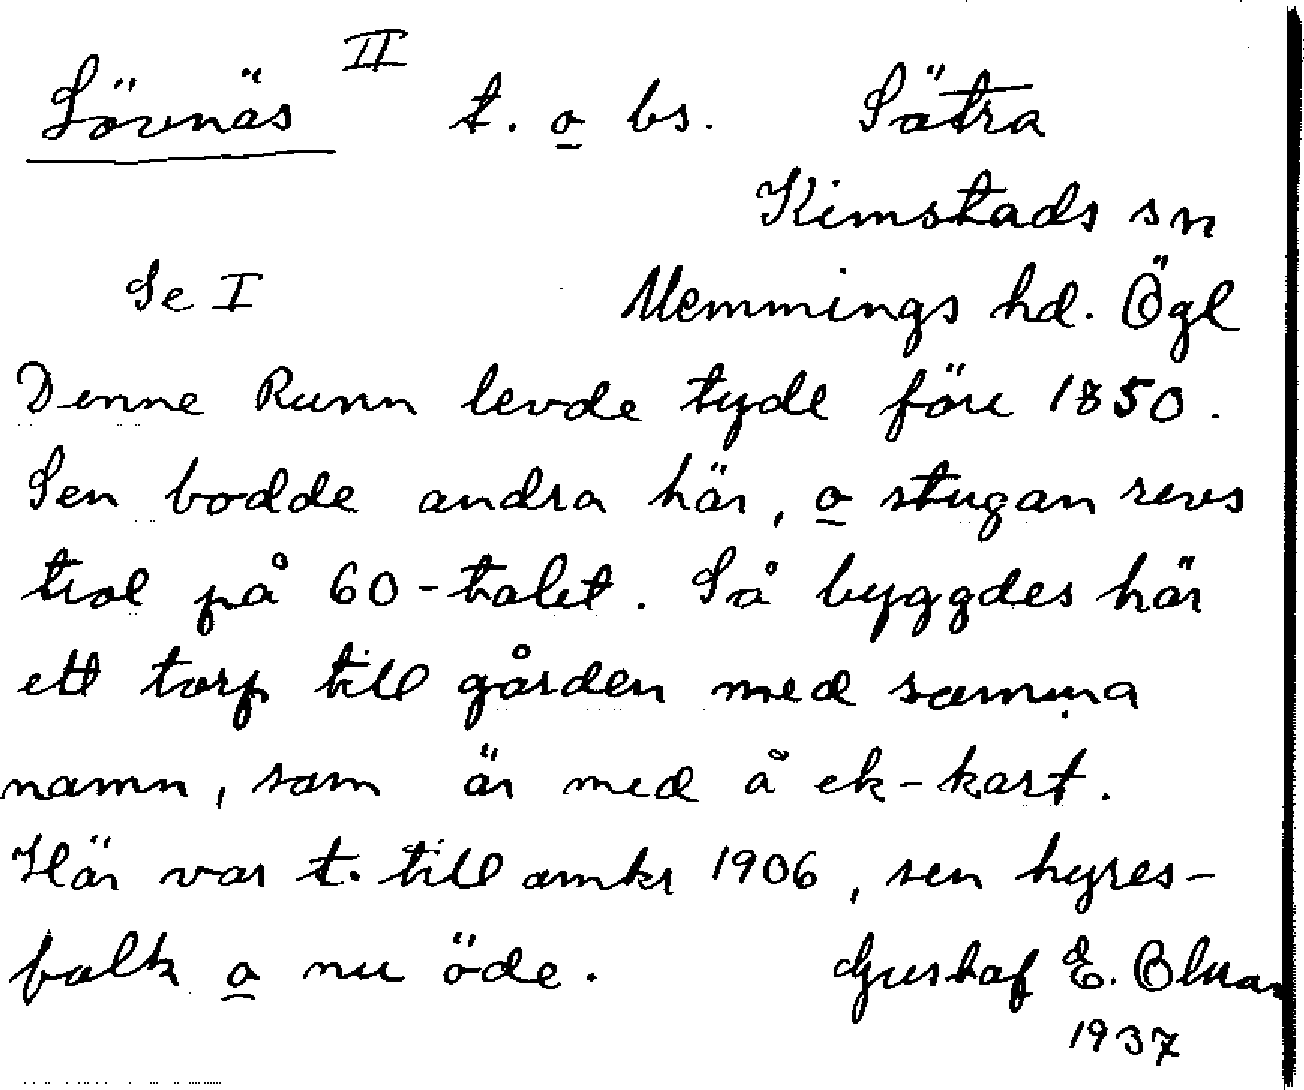 Sörnäs II t. o bs. Sätra
Kimstads sn
Se I Memmings hd. Ögl
Denne Runn levde tydl före 1850.
Sen bodde andra här, o stugan revs
trol på 60-talet. Så byggdes här
ett torp till gården med samma
namn, som är med å ek-kart.
Här var t. till omkr 1906, sen hyres-
folk o nu öde. Gustaf E.
1937